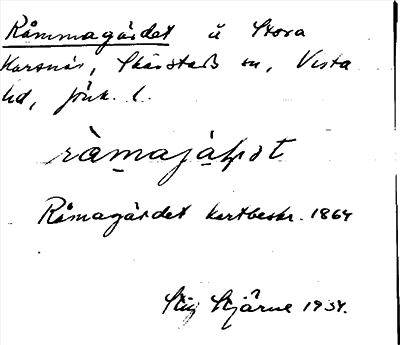 Råmmagärdet å Stora
Korsnäs, Skärstads sn, Vista
hd, Jönk. l.
ràmajàḷṣt
Råmagärdet kartbeskr. 1864
Stig Stjärne 1934.